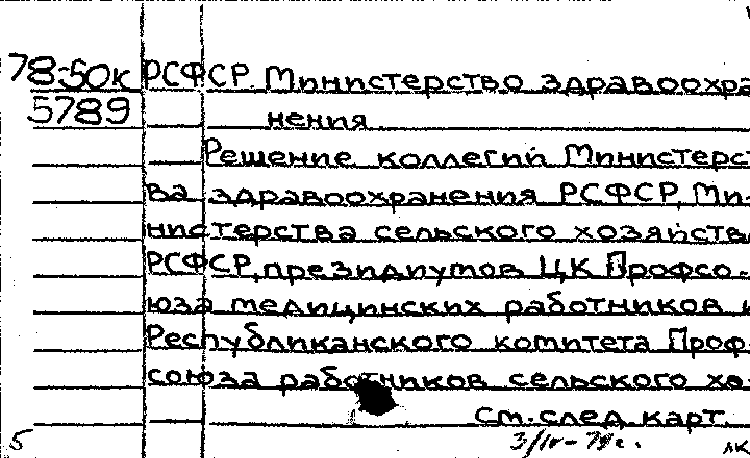 78-50к РСФСР. Министерство здравоохра
5789 нения.
Решение коллегий Министерст
ва здравоохранения РСФСР, Ми-
нистерства сельского хозяйства
РСФСР, президиумов ЦК Профсо-
юза медицинских работников и
Республиканского комитета Проф-
союза работников сельского хо-
См. след. карт.
5 3/IV-79г. лк